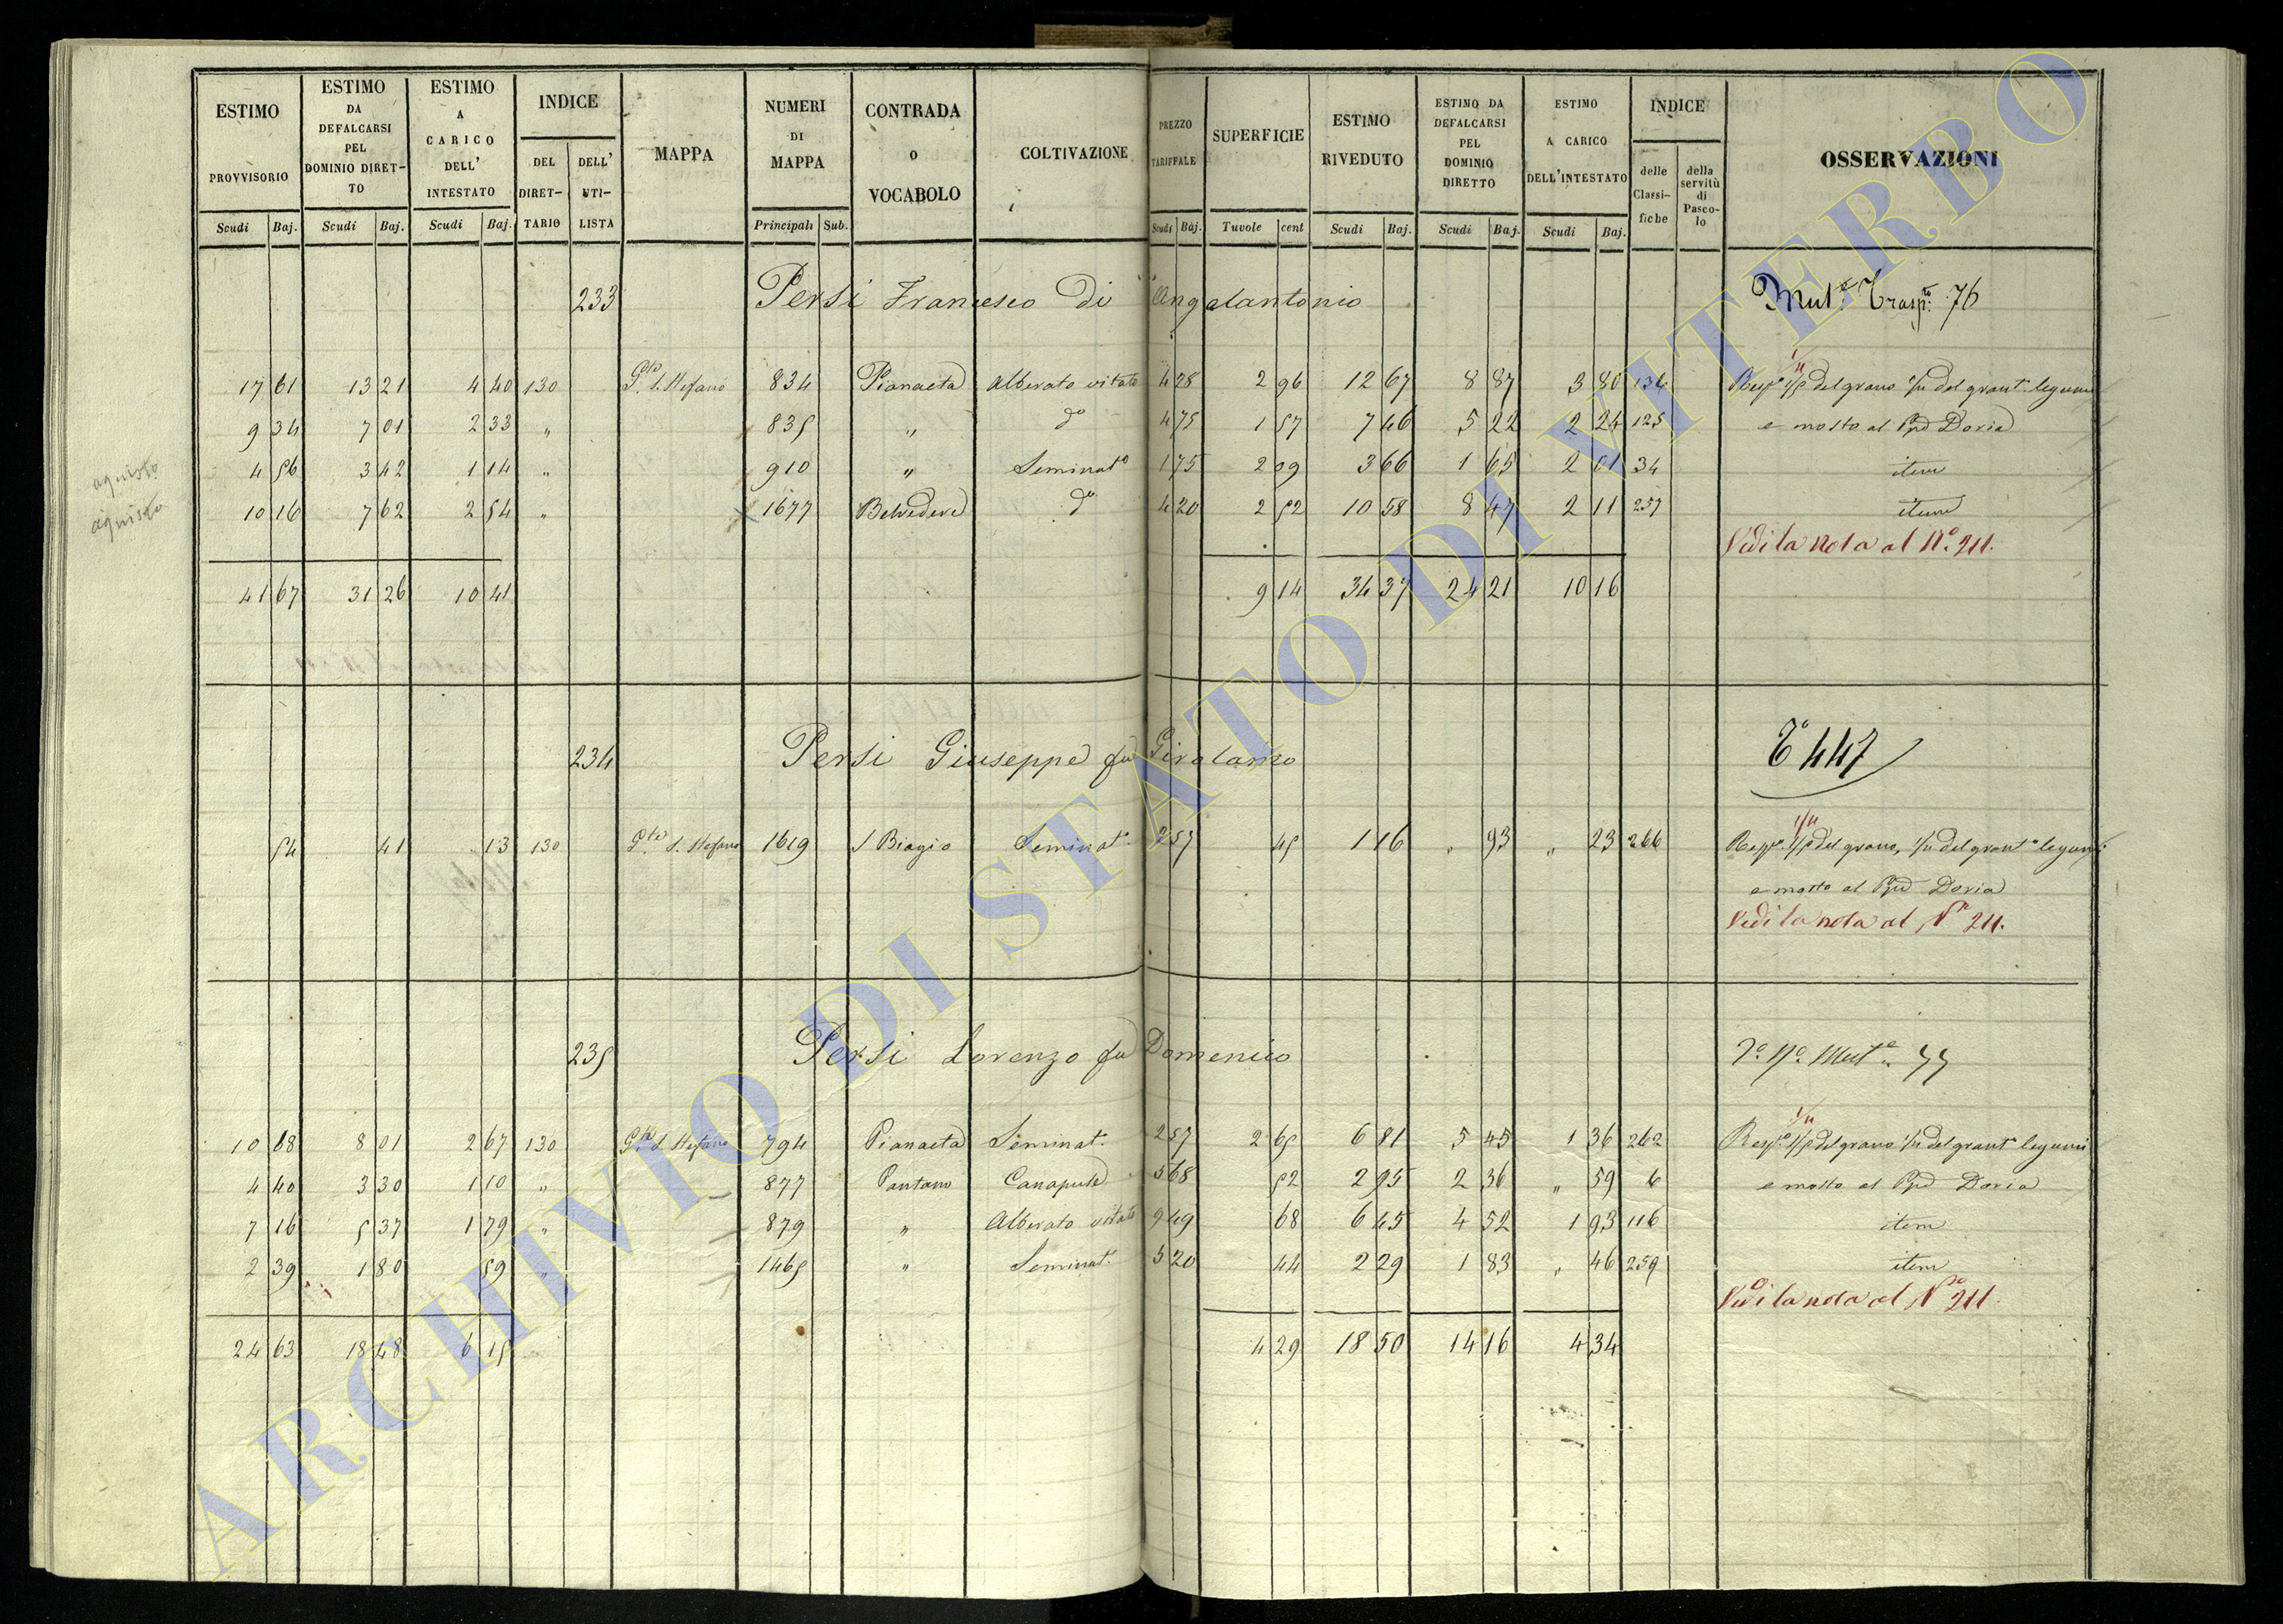 ESTIMO PROVVISORIO Scudi Baj.
ESTIMO DA DEFALCARSI PEL DOMINIO DIRETTO Scudi Baj.
ESTIMO A CARICO DELL' INTESTATO Scudi Baj.
INDICE DEL DIRETTARIO DELL' UTILISTA
MAPPA
NUMERI DI MAPPA Principali Sub.
CONTRADA O VOCABOLO
COLTIVAZIONE
PREZZO TARIFFALE Scudi Baj.
SUPERFICIE Tavole cent
ESTIMO RIVEDUTO Scudi Baj.
ESTIMO DA DEFALCARSI PEL DOMINIO DIRETTO Scudi Baj.
ESTIMO A CARICO DELL'INTESTATO Scudi Baj.
INDICE delle Classifiche della servitù di Pascolo
OSSERVAZIONI
233 Persi Francesco di Angelantonio Mut.e Trasp.to 76
17 61 13 21 4 40 130 P.to S. Stefano 834 Pianaeta Alberato vitato 4 28 2 96 12 67 8 87 3 80 134 Resp.e 1/5 del grano 1/4 del grant.o legumi
9 34 7 01 2 33 " 835 " do 4 75 1 57 7 46 5 22 2 24 125 e mosto al Ppe Doria
aquisto 4 56 3 42 1 14 " 910 " Seminat.o 1 75 2 09 3 66 1 65 2 01 34 item
aquisto 10 16 7 62 2 54 " 1677 Belvedere do 4 20 2 52 10 58 8 47 2 11 257 item
Vedi la nota al N.o 211.
41 67 31 26 10 41 9 14 34 37 24 21 10 16
234 Persi Giuseppe fu Girolamo T.o 447
54 41 13 130 P.to S. Stefano 1619 S Biagio Seminat.o 2 57 45 1 16 " 93 " 23 266 Resp.e 1/5 del grano, 1/4 del grant.o legumi
e mosto al Ppe Doria
Vedi la nota al N.o 211.
235 Persi Lorenzo fu Domenico T.o N.o Mut.e 77
10 68 8 01 2 67 130 P.to S. Stefano 794 Pianaeta Seminat.o 2 57 2 65 6 81 5 45 1 36 262 Resp.e 1/5 del grano 1/4 del grant.o legumi
4 40 3 30 1 10 " 877 Pantano Canapule 5 68 52 2 95 2 36 " 59 6 e mosto al Ppe Doria
7 16 5 37 1 79 " 879 " Alberato vitato 9 49 68 6 45 4 52 1 93 116 item
2 39 1 80 59 " 1465 " Seminat.o 5 20 44 2 29 1 83 " 46 259 item
Vedi la nota al N.o 211.
24 63 18 48 6 15 4 29 18 50 14 16 4 34
ARCHIVIO DI STATO DI VITERBO